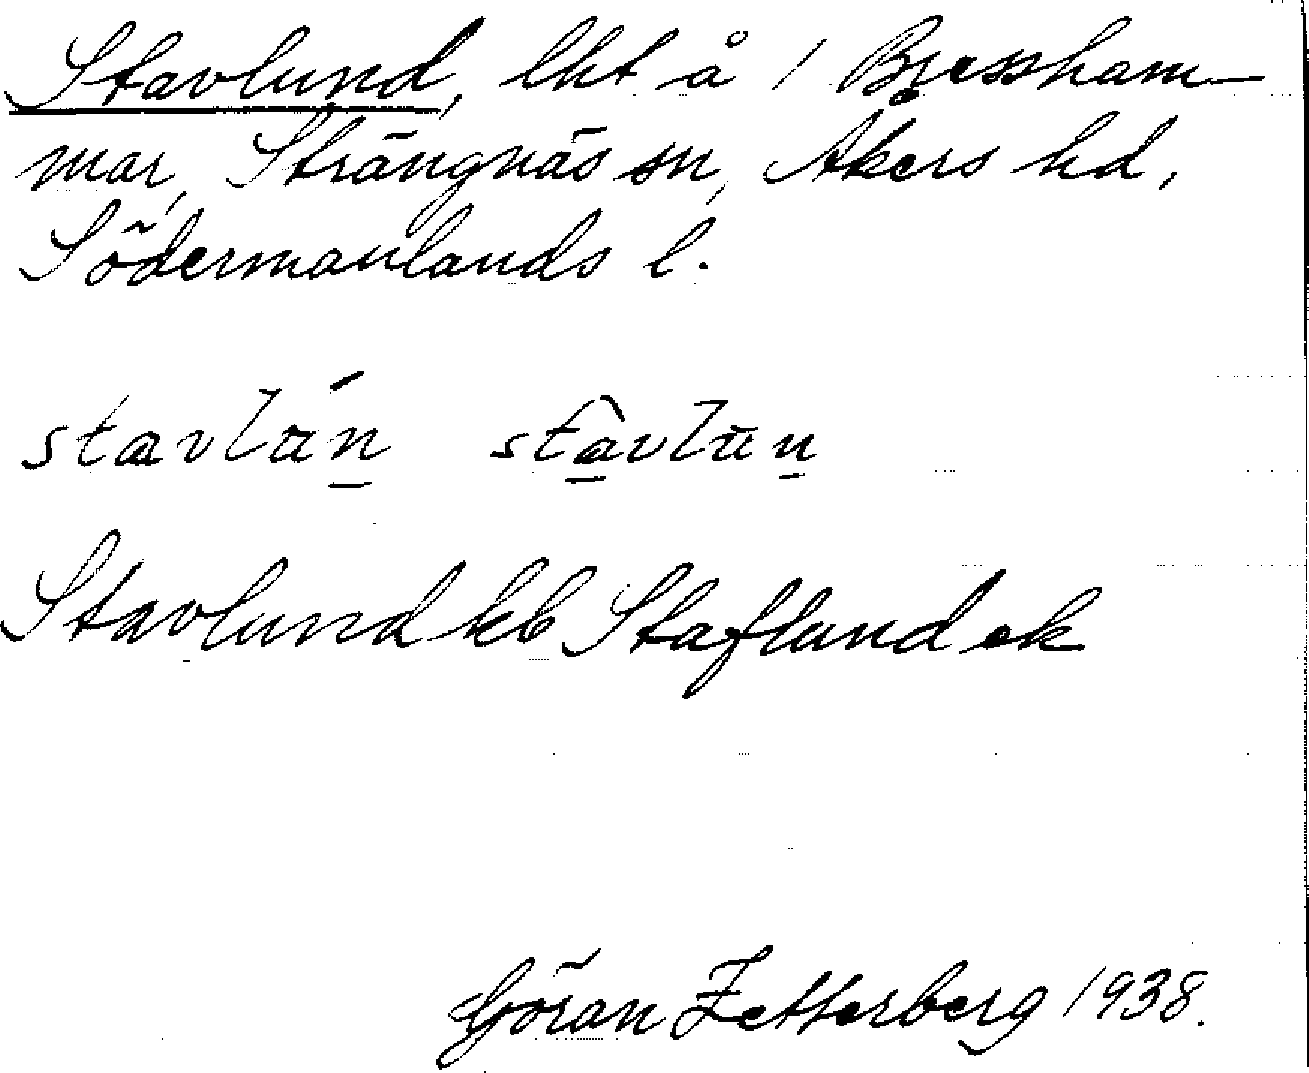 Stavlund, lht å 1 Bressham-
mar, Strängnäs sn, Åkers hd,
Södermanlands l.
stavlún stàvlun
Stavlund kb Staflund ek
Göran Zetterberg 1938.